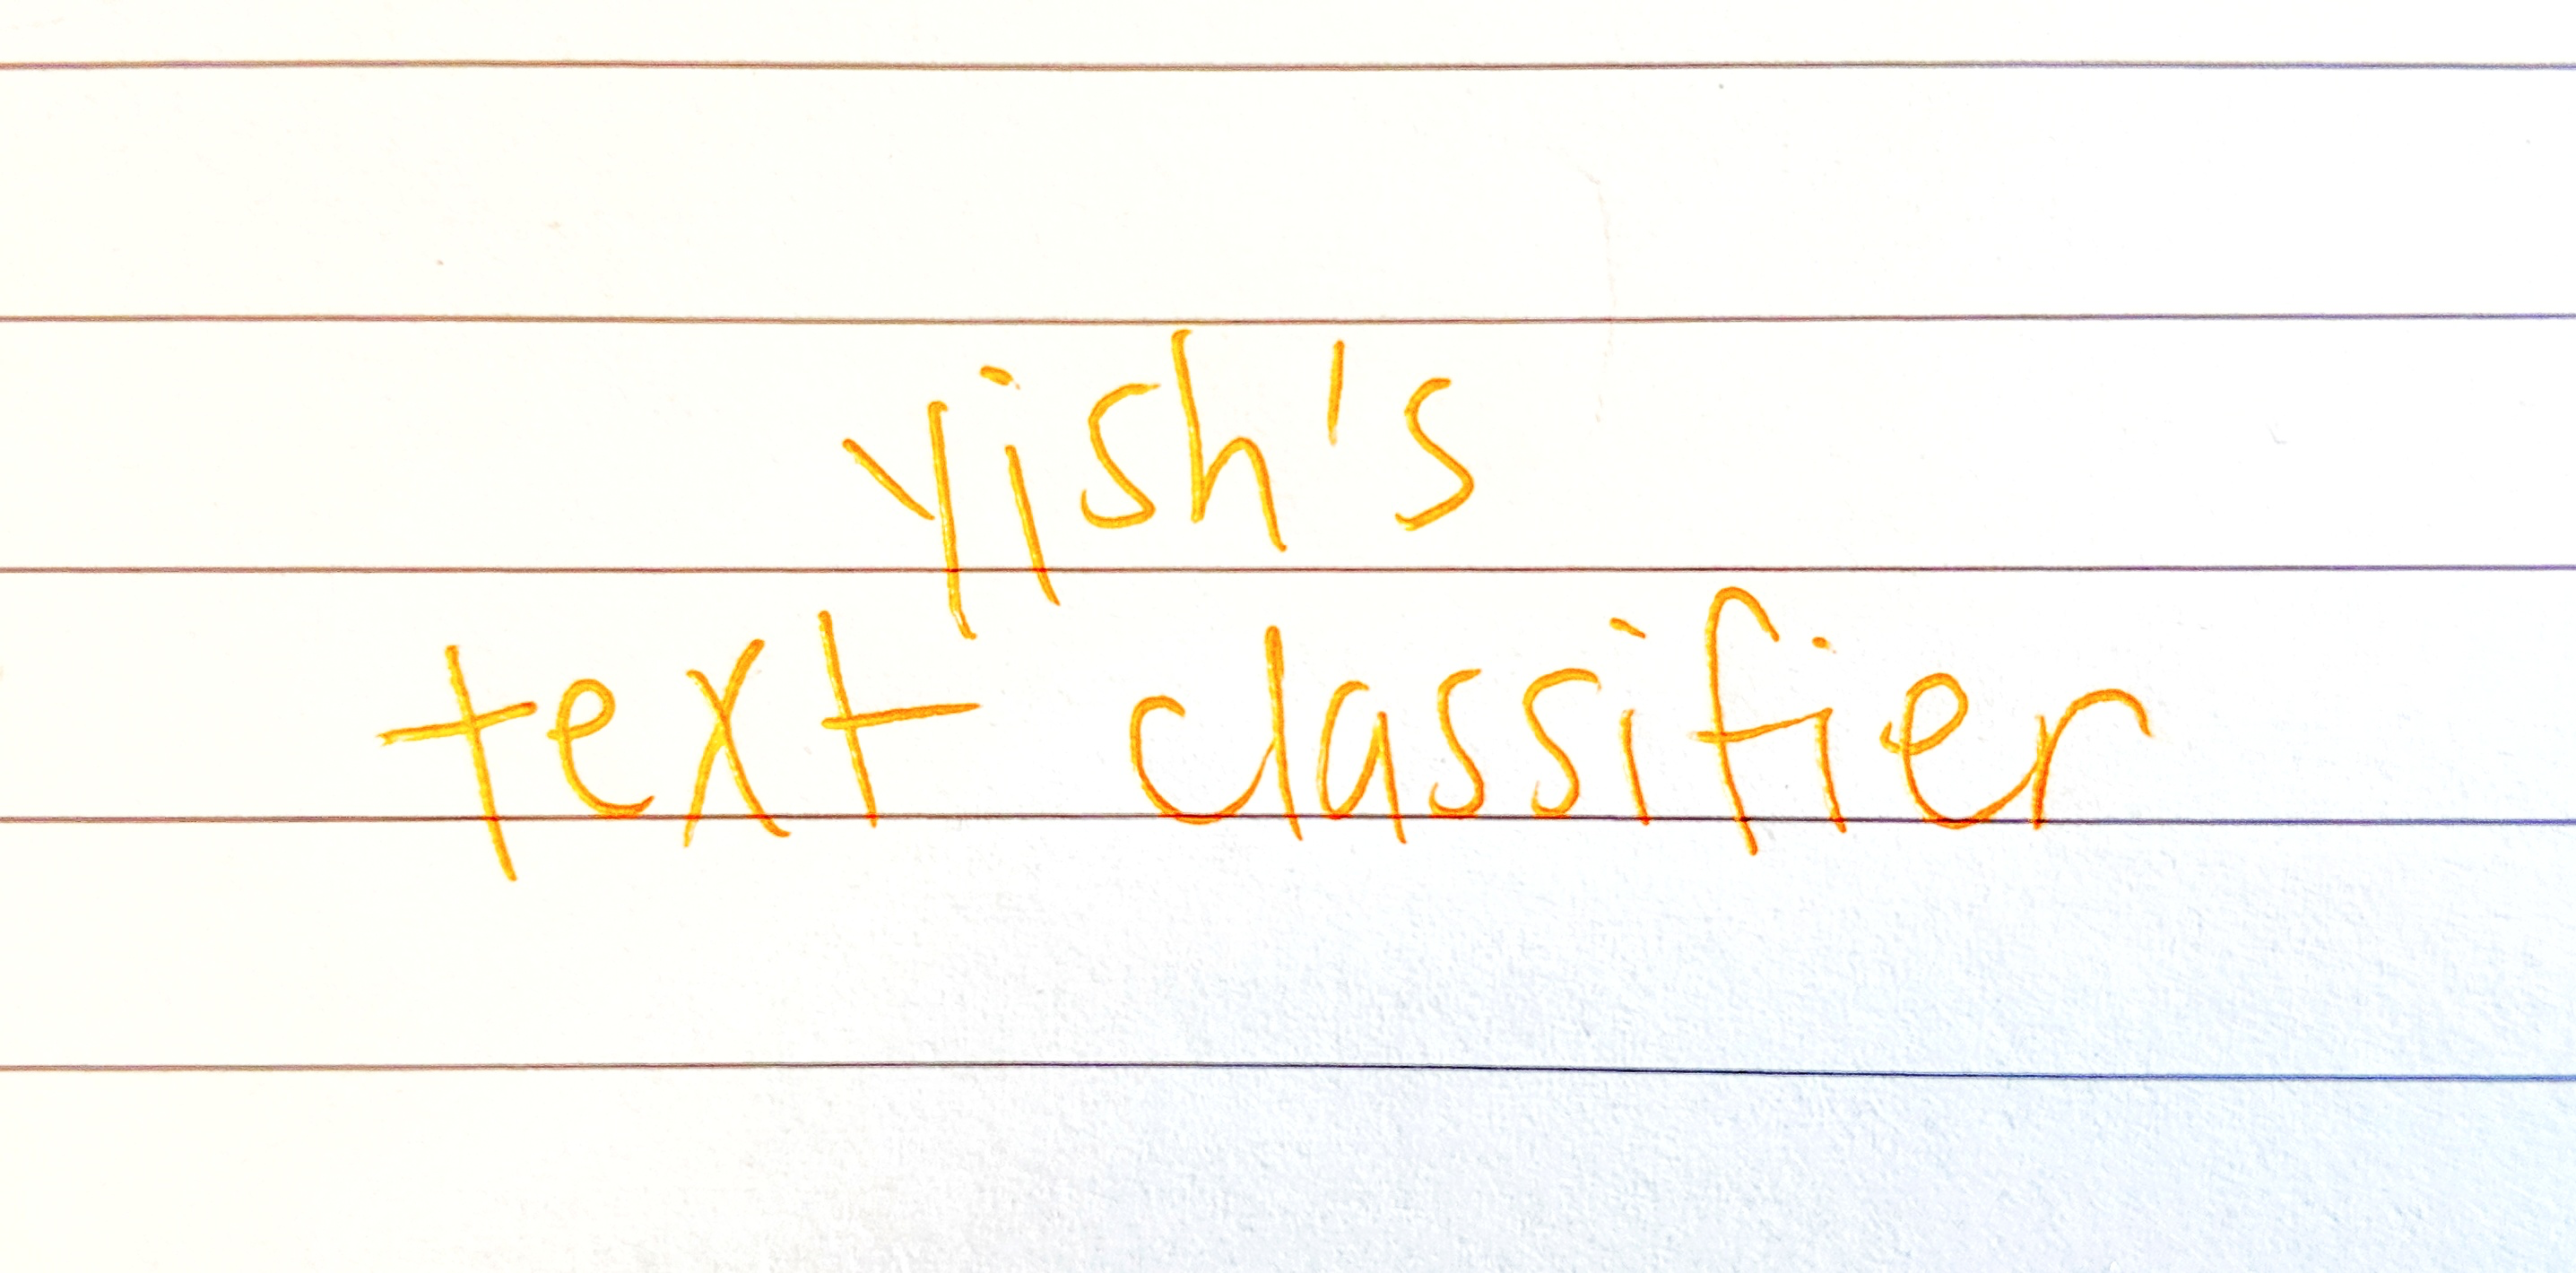 yish's
text classifier